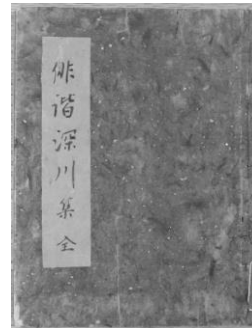 俳諧深川集 全